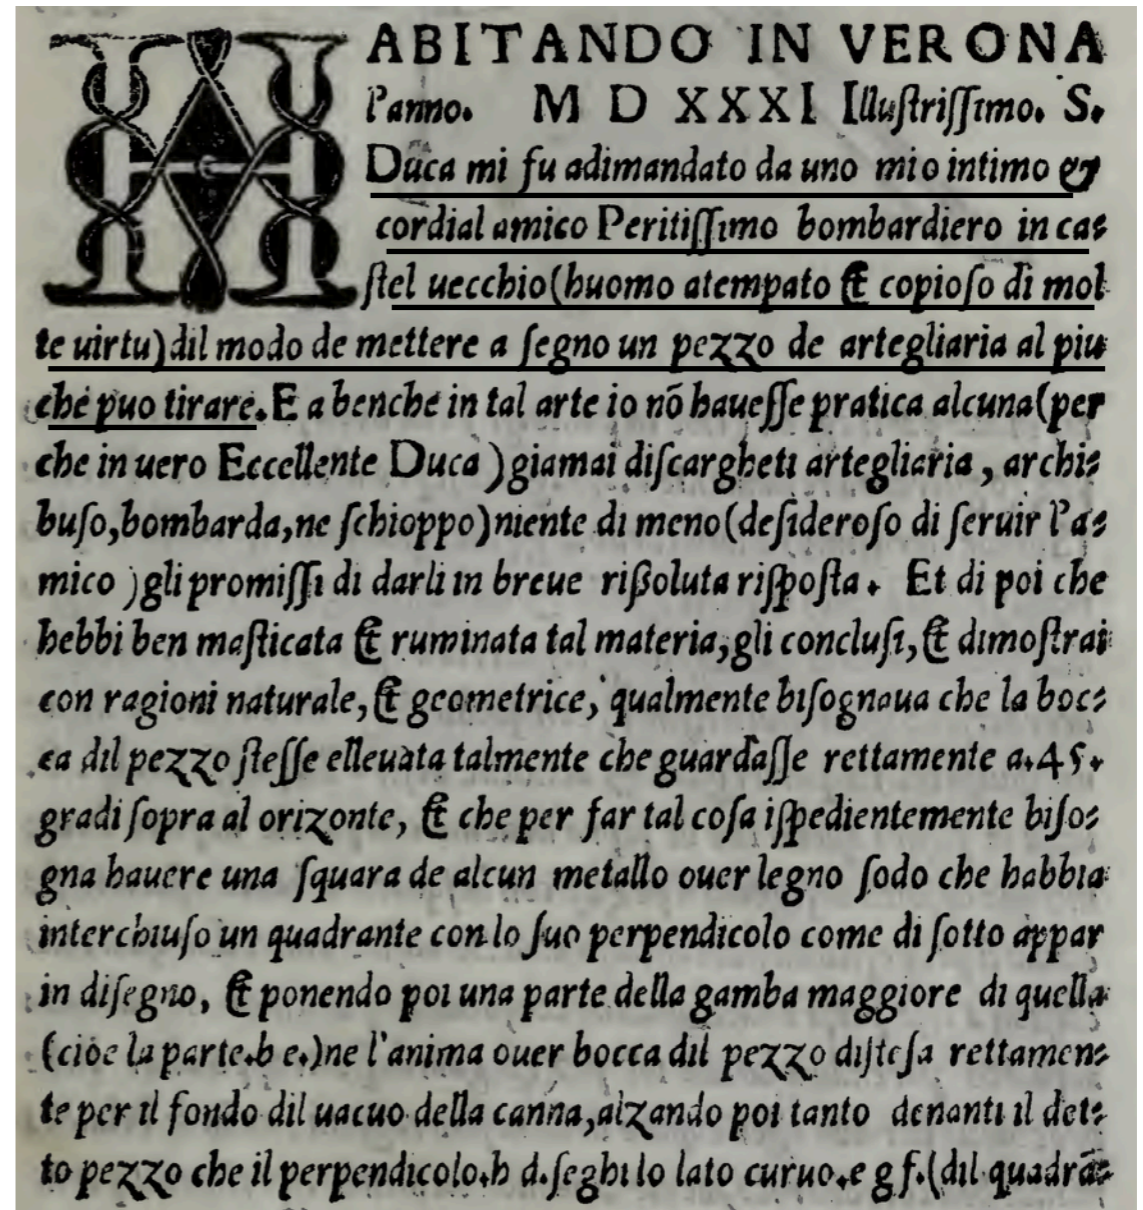 HABITANDO IN VERONA
l'anno. M D XXXI Illuſtriſſimo. S.
Duca mi fu adimandato da uno mio intimo &
cordial amico Peritiſſimo bombardiero in ca⸗
ſtel uecchio(huomo atempato & copioſo di mol
te uirtu)dil modo de mettere a ſegno un pezzo de artegliaria al piu
che puo tirare.E a benche in tal arte io nõ haueſſe pratica alcuna(per
che in uero Eccellente Duca)giamai diſcargheti artegliaria, archi⸗
buſo,bombarda,ne ſchioppo)niente di meno(deſideroſo di ſeruir l'a⸗
mico )gli promiſſi di darli in breue rißoluta riſpoſta. Et di poi che
hebbi ben maſticata & ruminata tal materia,gli concluſi,& dimoſtrai
con ragioni naturale,& geometrice, qualmente biſognaua che la boc⸗
ca dil pezzo ſteſſe elleuata talmente che guardaſſe rettamente a.45.
gradi ſopra al orizonte, & che per far tal coſa iſpedientemente biſo⸗
gna hauere una ſquara de alcun metallo ouer legno ſodo che habbia
interchiuſo un quadrante con lo ſuo perpendicolo come di ſotto appar
in diſegno, & ponendo poi una parte della gamba maggiore di quella
(cioe la parte.b e.)ne l'anima ouer bocca dil pezzo diſteſa rettamen⸗
te per il fondo dil uacuo della canna,alzando poi tanto denanti il det⸗
to pezzo che il perpendicolo.h d.ſeghi lo lato curuo.e g f.(dil quadrã⸗